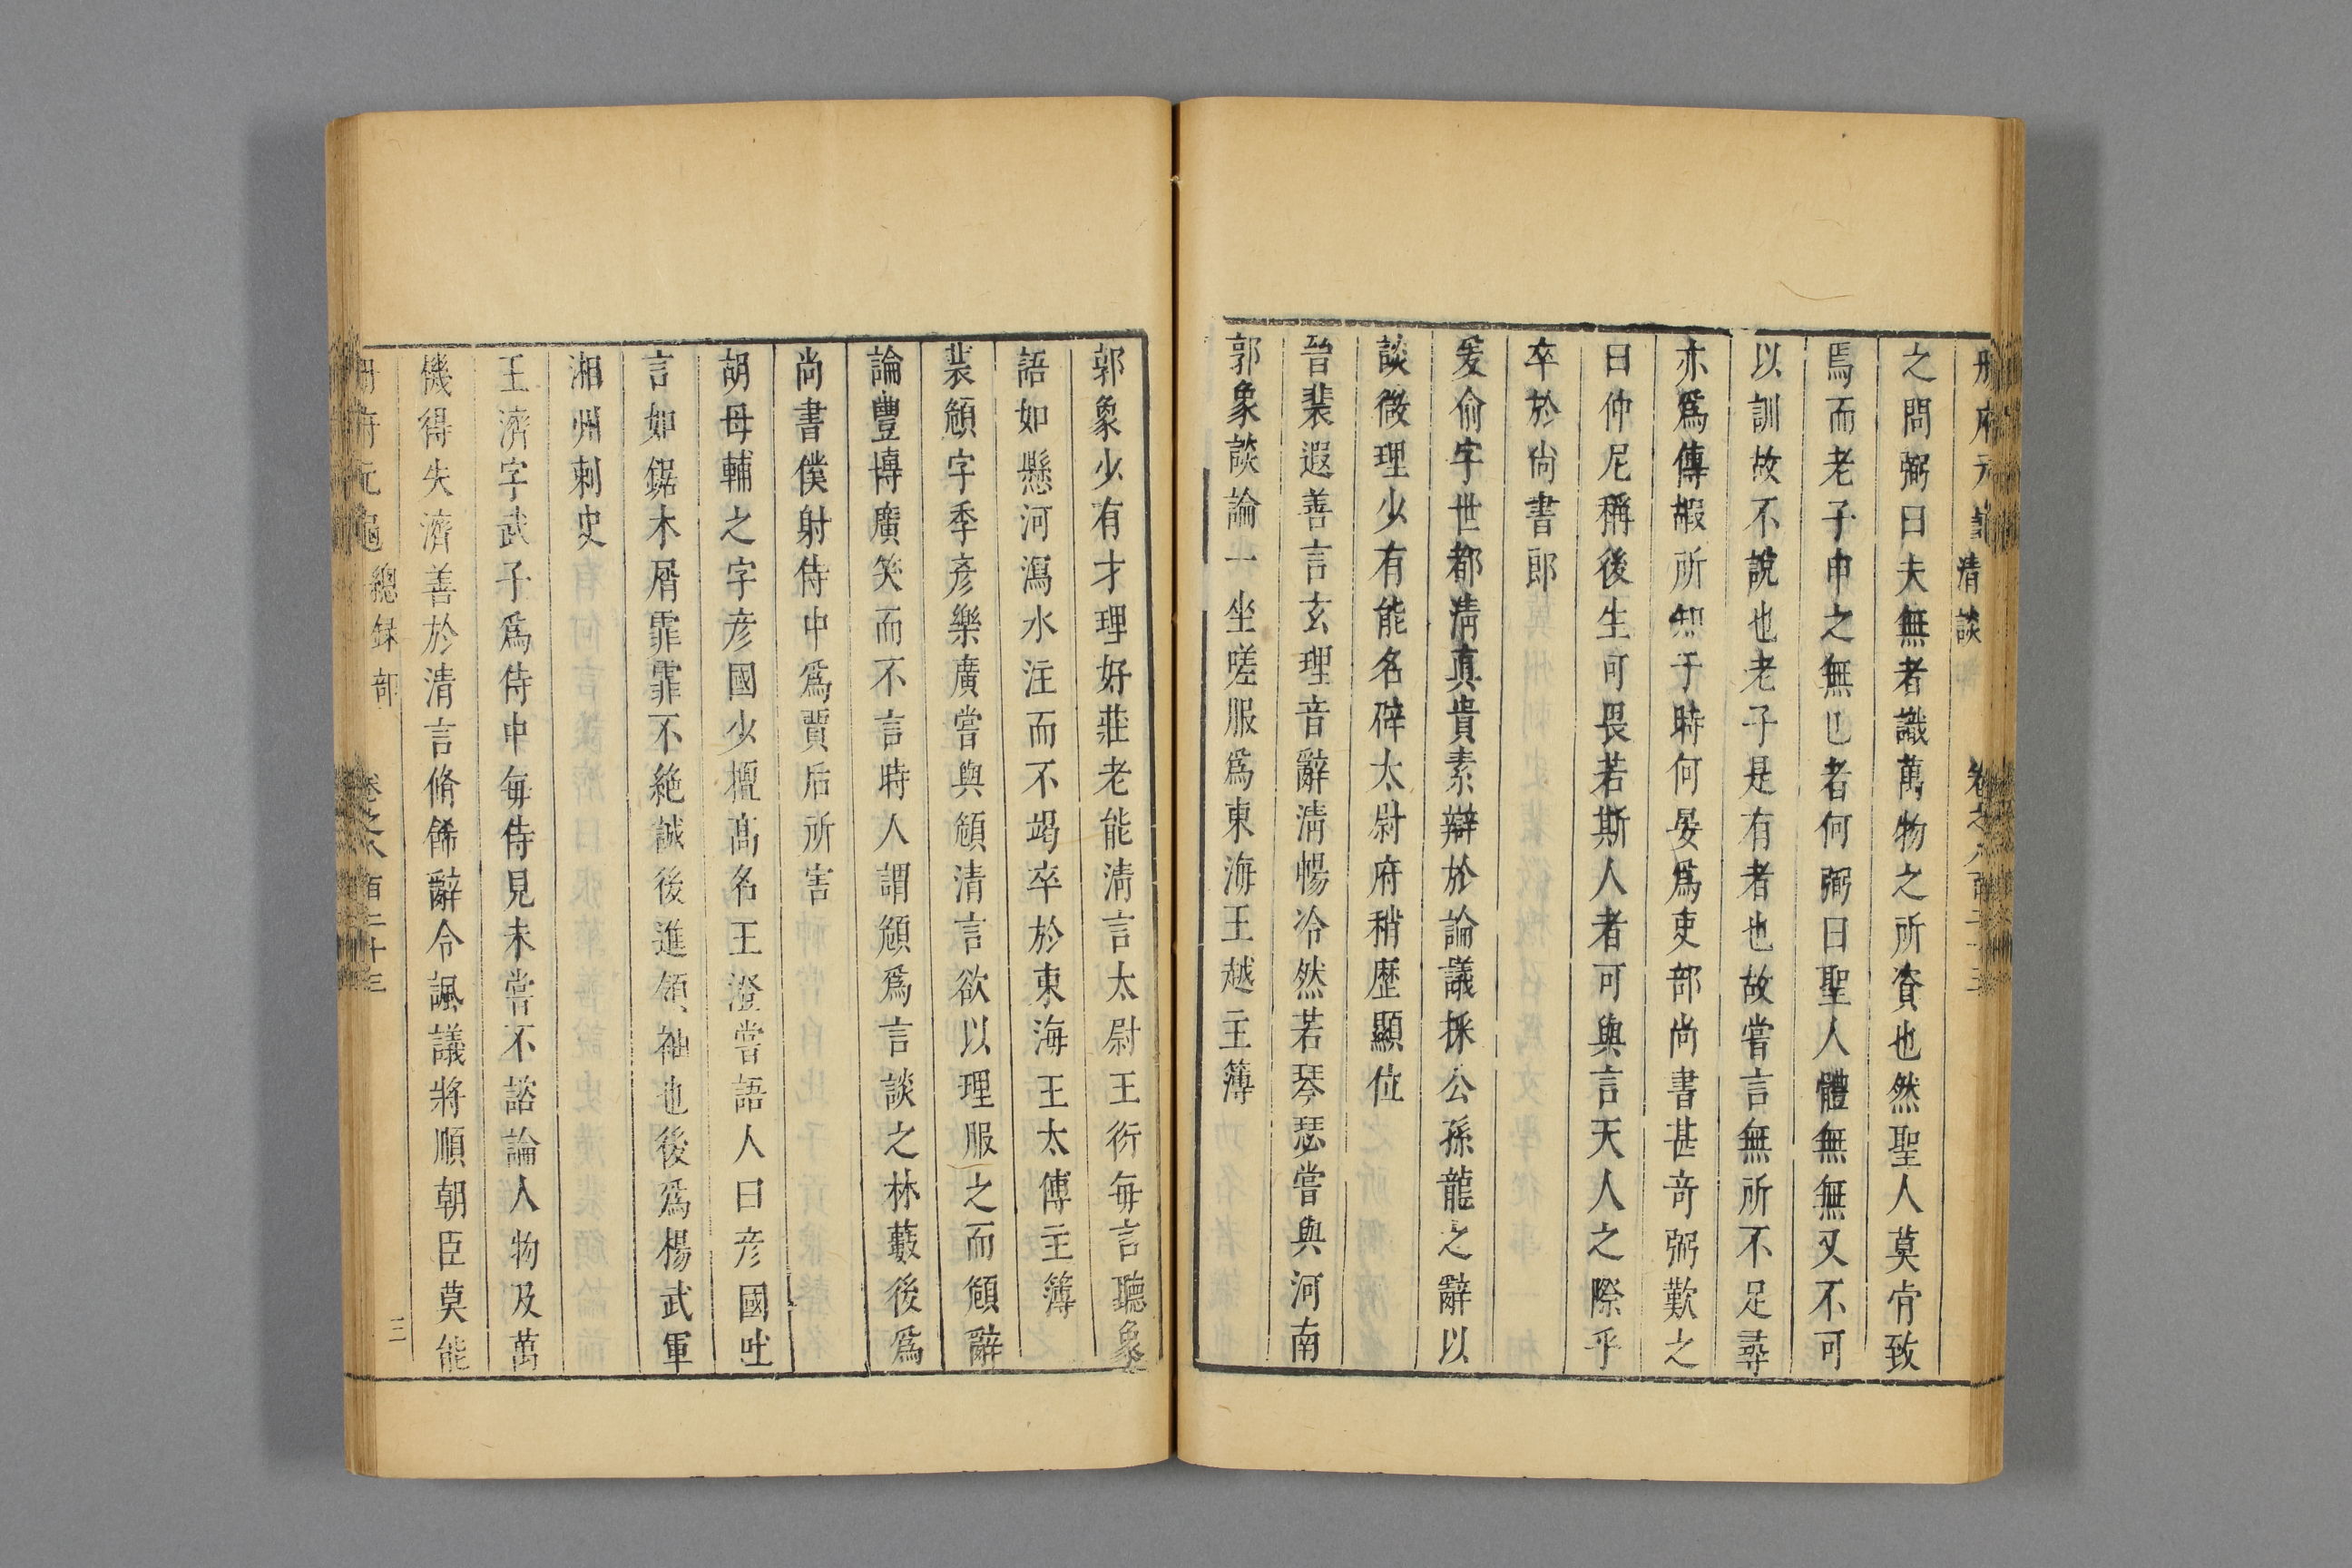 冊府元龜 清談 卷之八百二十三
之問弼曰夫無者識萬物之所資也然聖人莫肯致
焉而老子申之無已者何弼曰聖人體無無又不可
以訓故不說也老子是有者也故嘗言無所不足尋
亦爲傅嘏所知于時何晏爲吏部尚書甚奇弼歎之
曰仲尼稱後生可畏若斯人者可與言天人之際乎
卒於尚書郎
爰俞字世都清真貴素辯於論議採公孫龍之辭以
談微理少有能名辟太尉府稍歷顯位
晉裴遐善言玄理音辭清暢泠然若琴瑟嘗與河南
郭象談論一坐嗟服爲東海王越主簿
郭象少有才理好莊老能清言太尉王衍每言聽象
語如懸河瀉水注而不竭卒於東海王太傅主簿
裴頠字季彥樂廣嘗與頠清言欲以理服之而頠辭
論豐博廣笑而不言時人謂頠爲言談之林藪後爲
尚書僕射侍中爲賈后所害
胡母輔之字彥國少擅高名王澄嘗語人曰彥國吐
言如鋸木屑霏霏不絶誠後進領袖也後爲楊武軍
湘州刺史
王濟字武子爲侍中每侍見未嘗不諮論人物及萬
機得失濟善於清言脩餙辭令諷議將順朝臣莫能
冊府元龜 總録部 卷之八百二十三 三